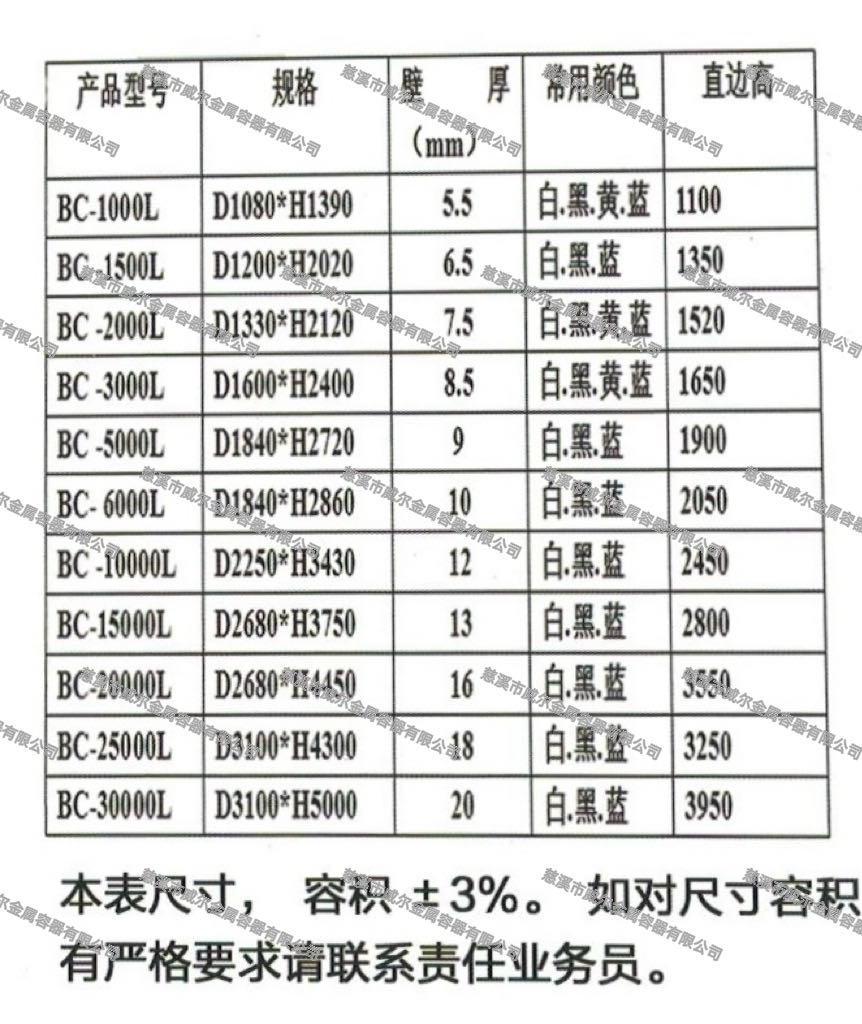 产品型号 规格 壁 厚 常用颜色 直边高
（mm）
BC-1000L D1080*H1390 5.5 白.黑.黄.蓝 1100
BC -1500L D1200*H2020 6.5 白.黑.蓝 1350
BC -2000L D1330*H2120 7.5 白.黑.黄.蓝 1520
BC -3000L D1600*H2400 8.5 白.黑.黄.蓝 1650
BC -5000L D1840*H2720 9 白.黑.蓝 1900
BC- 6000L D1840*H2860 10 白.黑.蓝 2050
BC -10000L D2250*H3430 12 白.黑.蓝 2450
BC-15000L D2680*H3750 13 白.黑.蓝 2800
BC-20000L D2680*H4450 16 白.黑.蓝 3550
BC-25000L D3100*H4300 18 白.黑.蓝 3250
BC-30000L D3100*H5000 20 白.黑.蓝 3950
本表尺寸， 容积 ±3%。 如对尺寸容积
有严格要求请联系责任业务员。
慈溪市威尔金属容器有限公司